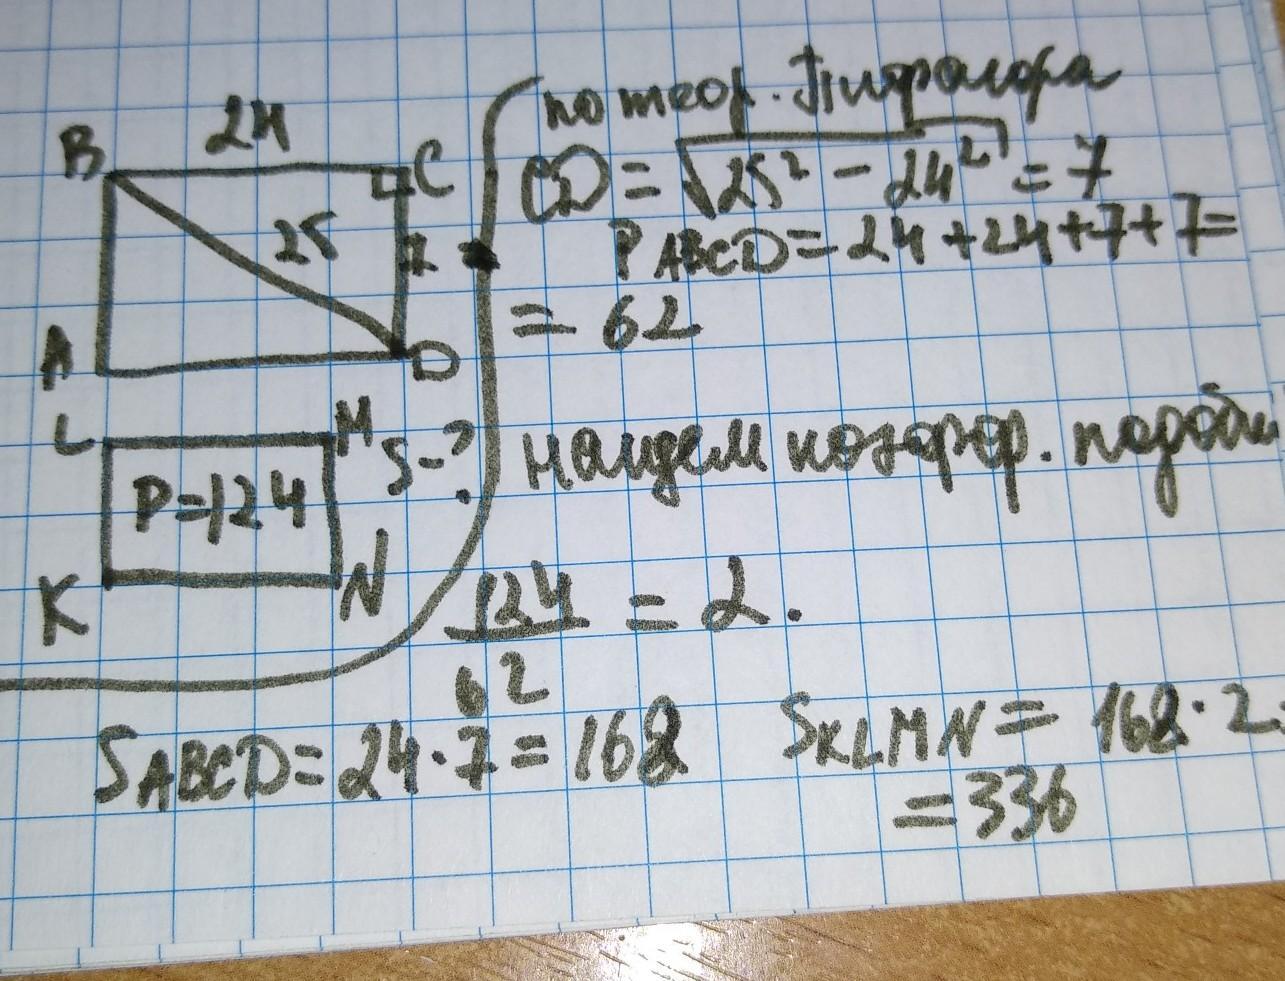 24
B
C
25
7
A
D
L
M
P=124
S-?
K
N
по теор. Пифагора
CD = √25² - 24² = 7
P ABCD = 24 + 24 + 7 + 7 =
= 62
Найдем коэффф. подоби
124
= 2.
62
S ABCD = 24 · 7 = 168
S KLMN = 168 · 2
= 336